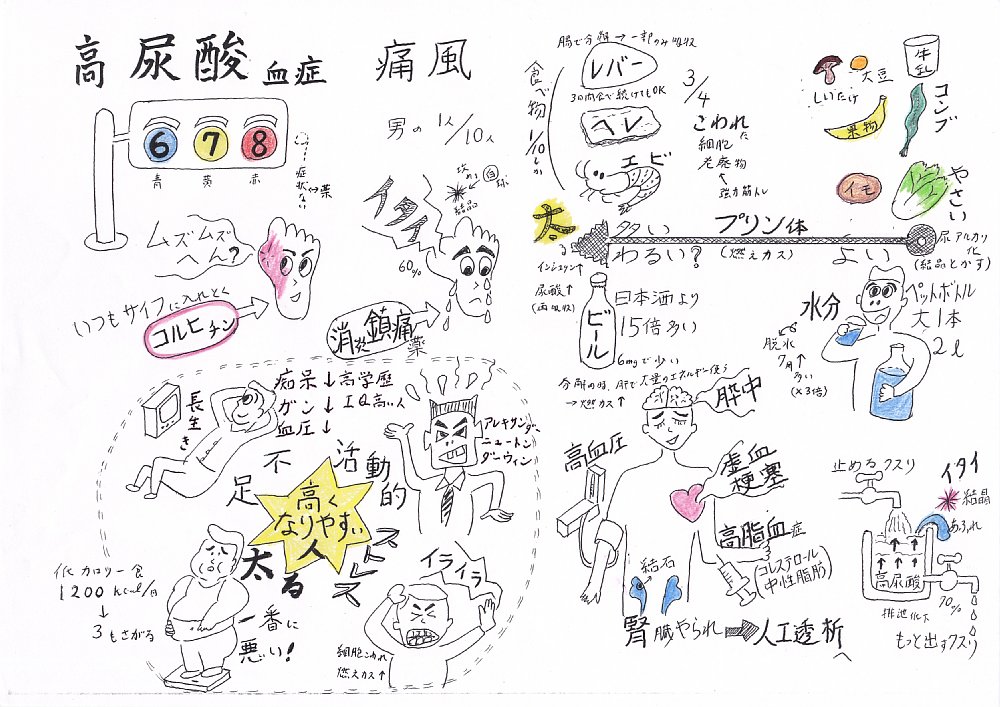 高尿酸血症 痛風
6 7 8
青 黄 赤
症状ない⇔薬
男の1人/10人
ムズムズ
へん?
いつもサイフに入れとく
コルヒチン
イタイ
結晶
60%
消炎鎮痛薬
腸で分解→一部のみ吸収
食べ物 1/10しか
レバー
3日間食べ続けてもOK
ヘレ
エビ
3/4
こわれた
細胞
老廃物
↑
強力筋トレ
しいたけ
大豆
牛乳
コンブ
果物
イモ
やさい
太る
インシュリン↑
尿酸↑
(再吸収)
多い プリン体
わるい? (燃えカス) よい
尿アルカリ化
(結晶とかす)
ビール
日本酒より
15倍多い
6mgで少い
分解の時、肝で大量のエネルギー使う
→燃カス↑
水分
脱水
7月↑
多い
(×3倍)
ペットボトル
大1本
2ℓ
長生き
痴呆↓高学歴
ガン↓IQ高い人
血圧↓
アレキサンダー
ニュートン
ダーウィン
不足
活動的
高く
なりやすい
人
太る
ストレス
一番に
悪い!
低カロリー食
1200kcal/日
↓
3もさがる
イライラ
細胞こわれ
燃えカス↑
高血圧
脳卒中
虚血
梗塞
高脂血症
(コレステロール
中性脂肪)
結石
腎臓やられ→人工透析へ
止めるクスリ
イタイ
結晶
あふれ
高尿酸
排泄低下
90%
もっと出すクスリ